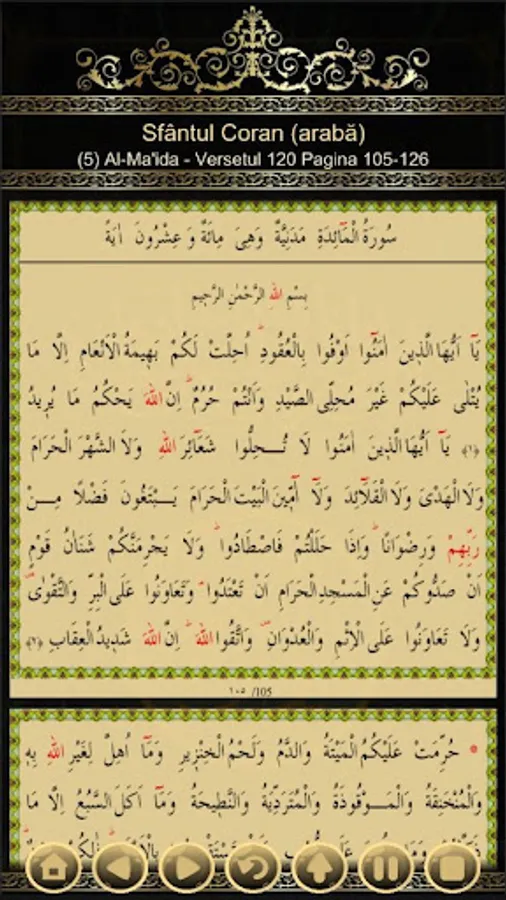 Sfântul Coran (arabă)
(5) Al-Ma'ida - Versetul 120 Pagina 105-126
سُورَةُ الْمَٓائِدَةِ مَدَنِيَّةٌ وَهِىَ مِائَةٌ وَ عِشْرُونَ اٰيَةً
بِسْمِ اللّٰهِ الرَّحْمٰنِ الرَّحِيمِ
يَٓا اَيُّهَا الَّذِينَ اٰمَنُٓوا اَوْفُوا بِالْعُقُودِۜ اُحِلَّتْ لَكُمْ بَهِيمَةُ الْاَنْعَامِ اِلَّا مَا
يُتْلٰى عَلَيْكُمْ غَيْرَ مُحِلِّى الصَّيْدِ وَاَنْتُمْ حُرُمٌۜ اِنَّ اللّٰهَ يَحْكُمُ مَا يُرِيدُ
﴿١﴾ يَٓا اَيُّهَا الَّذِينَ اٰمَنُوا لَا تُحِلُّوا شَعَٓائِرَ اللّٰهِ وَلَا الشَّهْرَ الْحَرَامَ
وَلَا الْهَدْىَ وَلَا الْقَلَٓائِدَ وَلَٓا اٰمِّينَ الْبَيْتَ الْحَرَامَ يَبْتَغُونَ فَضْلًا مِنْ
رَبِّهِمْ وَرِضْوَانًاۜ وَاِذَا حَلَلْتُمْ فَاصْطَادُواۜ وَلَا يَجْرِمَنَّكُمْ شَنَاٰنُ قَوْمٍ
اَنْ صَدُّوكُمْ عَنِ الْمَسْجِدِ الْحَرَامِ اَنْ تَعْتَدُواۢ وَتَعَاوَنُوا عَلَى الْبِرِّ وَالتَّقْوٰىۖ
وَلَا تَعَاوَنُوا عَلَى الْاِثْمِ وَالْعُدْوَانِۖ وَاتَّقُوا اللّٰهَۜ اِنَّ اللّٰهَ شَدِيدُ الْعِقَابِ ﴿٢﴾
١٠٥ /105
حُرِّمَتْ عَلَيْكُمُ الْمَيْتَةُ وَالدَّمُ وَلَحْمُ الْخِنْزِيرِ وَمَٓا اُهِلَّ لِغَيْرِ اللّٰهِ بِهِ
وَالْمُنْخَنِقَةُ وَالْمَوْقُوذَةُ وَالْمُتَرَدِّيَةُ وَالنَّطِيحَةُ وَمَٓا اَكَلَ السَّبُعُ اِلَّا مَا